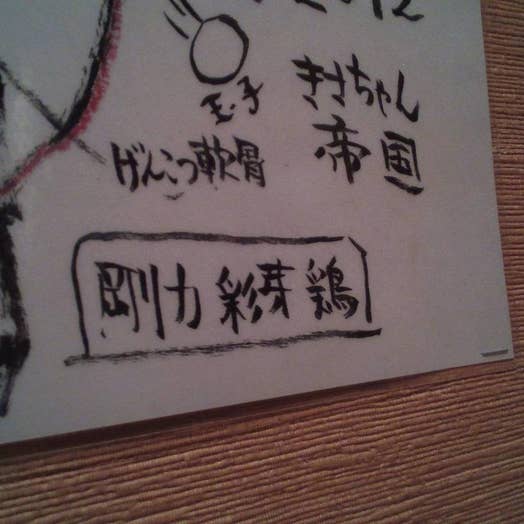 玉子
げんこつ軟骨
きさちゃん
帝国
剛力彩芽鶏